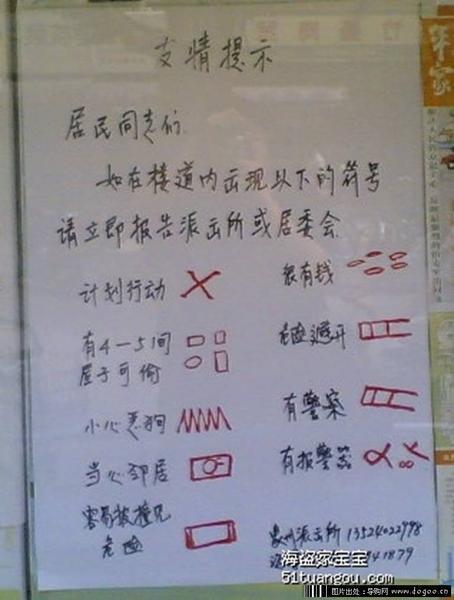 友情提示
居民同志们
如在楼道内出现以下的符号
请立即报告派出所或居委会
计划行动
很有钱
有4—5间
屋子可偷
危险避开
小心恶狗
有警察
当心邻居
有报警器
容易被撞见
危险
派出所 13524022998
1879
海盗家宝宝
51tuangou.com
图片出处:导购网 www.dogoo.cn